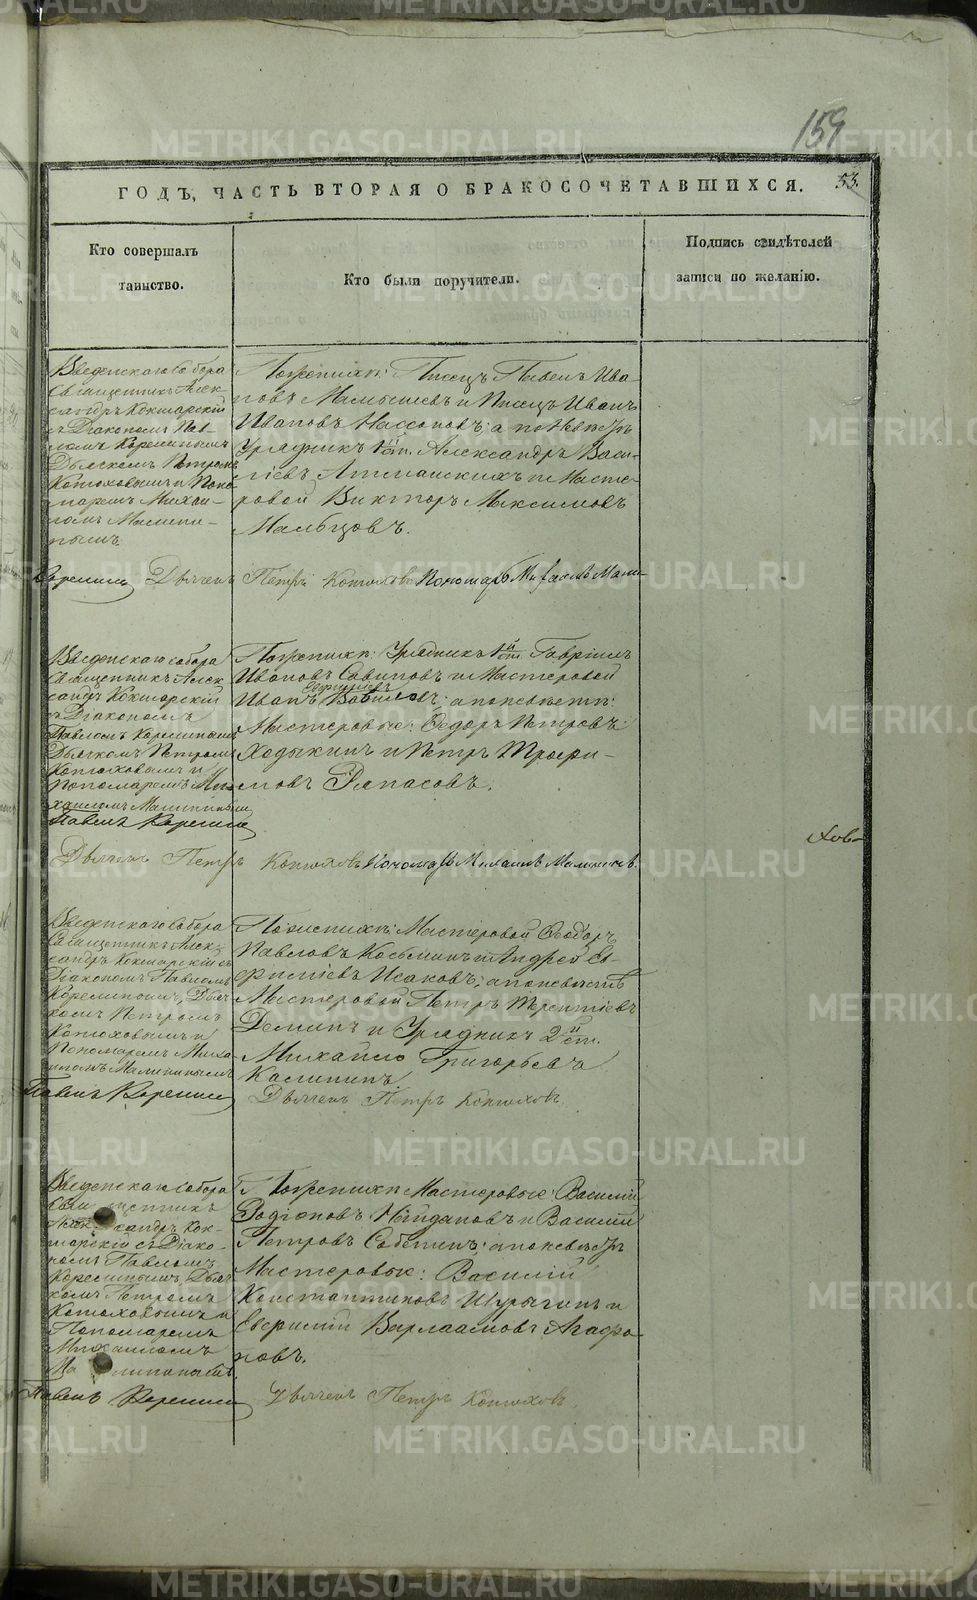 159
ГОДЪ, ЧАСТЬ ВТОРАЯ О БРАКОСОЧЕТАВШИХСЯ.
53.
Кто совершалъ
таинство.
Кто были поручители.
Подпись свидѣтелей
записи по желанію.
Введенскаго собора
Священникъ Алек-
сандръ Кокшарскій
съ Діакономъ Пав-
ломъ Корелинымъ
Дьячкомъ Петромъ
Котюховымъ и Поно-
маремъ Михаи-
ломъ Малини-
нымъ.
По женихѣ: Писецъ Павелъ Ива-
новъ и Писецъ Иванъ
Ивановъ Нассоновъ; а по невѣстѣ
Урядникъ 1й ст. Александръ Васи-
ліевъ и Масте-
ровой Викторъ Максимовъ
Мальцовъ.
Корелинъ Дьячекъ Петръ Котюховъ Пономарь Михаилъ Мали-
Введенскаго собора
Священникъ Алек-
сандръ Кокшарскій
съ Діакономъ
Павломъ Корелинымъ
Дьячкомъ Петромъ
Котюховымъ и
Пономаремъ Ми-
хаиломъ Малининымъ
Павелъ Корелинъ
По женихѣ: Урядникъ 1й ст. Гавріилъ
Ивановъ Савиновъ и Мастеровой
Иванъ а по невѣстѣ:
Мастеровые: Ѳедоръ Петровъ
Ходыкинъ и Петръ Трофи-
мовъ Запасовъ.
Дьячекъ Петръ Котюховъ Пономарь Михаилъ Малининъ.
Введенскаго собора
Священникъ Алек-
сандръ Кокшарскій съ
Діакономъ Павломъ
Корелинымъ, Дьяч-
комъ Петромъ
Котюховымъ и
Пономаремъ Миха-
иломъ Малининымъ
Павелъ Корелинъ
По женихѣ: Мастеровой Ѳеодоръ
Павловъ Косьминъ и Андрей Ев-
Исаковъ; а по невѣстѣ
Мастеровой Петръ Терентіевъ
Деминъ и Урядникъ 2й ст.
Михайло Григорьевъ
Калининъ.
Дьячекъ Петръ Котюховъ.
Введенскаго собора
Священникъ
Александръ Кок-
шарскій съ Діако-
номъ Павломъ
Корелинымъ, Дьяч-
комъ Петромъ
Котюховымъ и
Пономаремъ
Михаиломъ
Малининымъ.
Павелъ Корелинъ
По женихѣ Мастеровые: Василій
Родіоновъ и Василій
Петровъ а по невѣстѣ
Мастеровые: Василій
Константиновъ Шурыгинъ и
Варлаамовъ Агафо-
новъ.
Дьячекъ Петръ Котюховъ.
METRIKI.GASO-URAL.RU